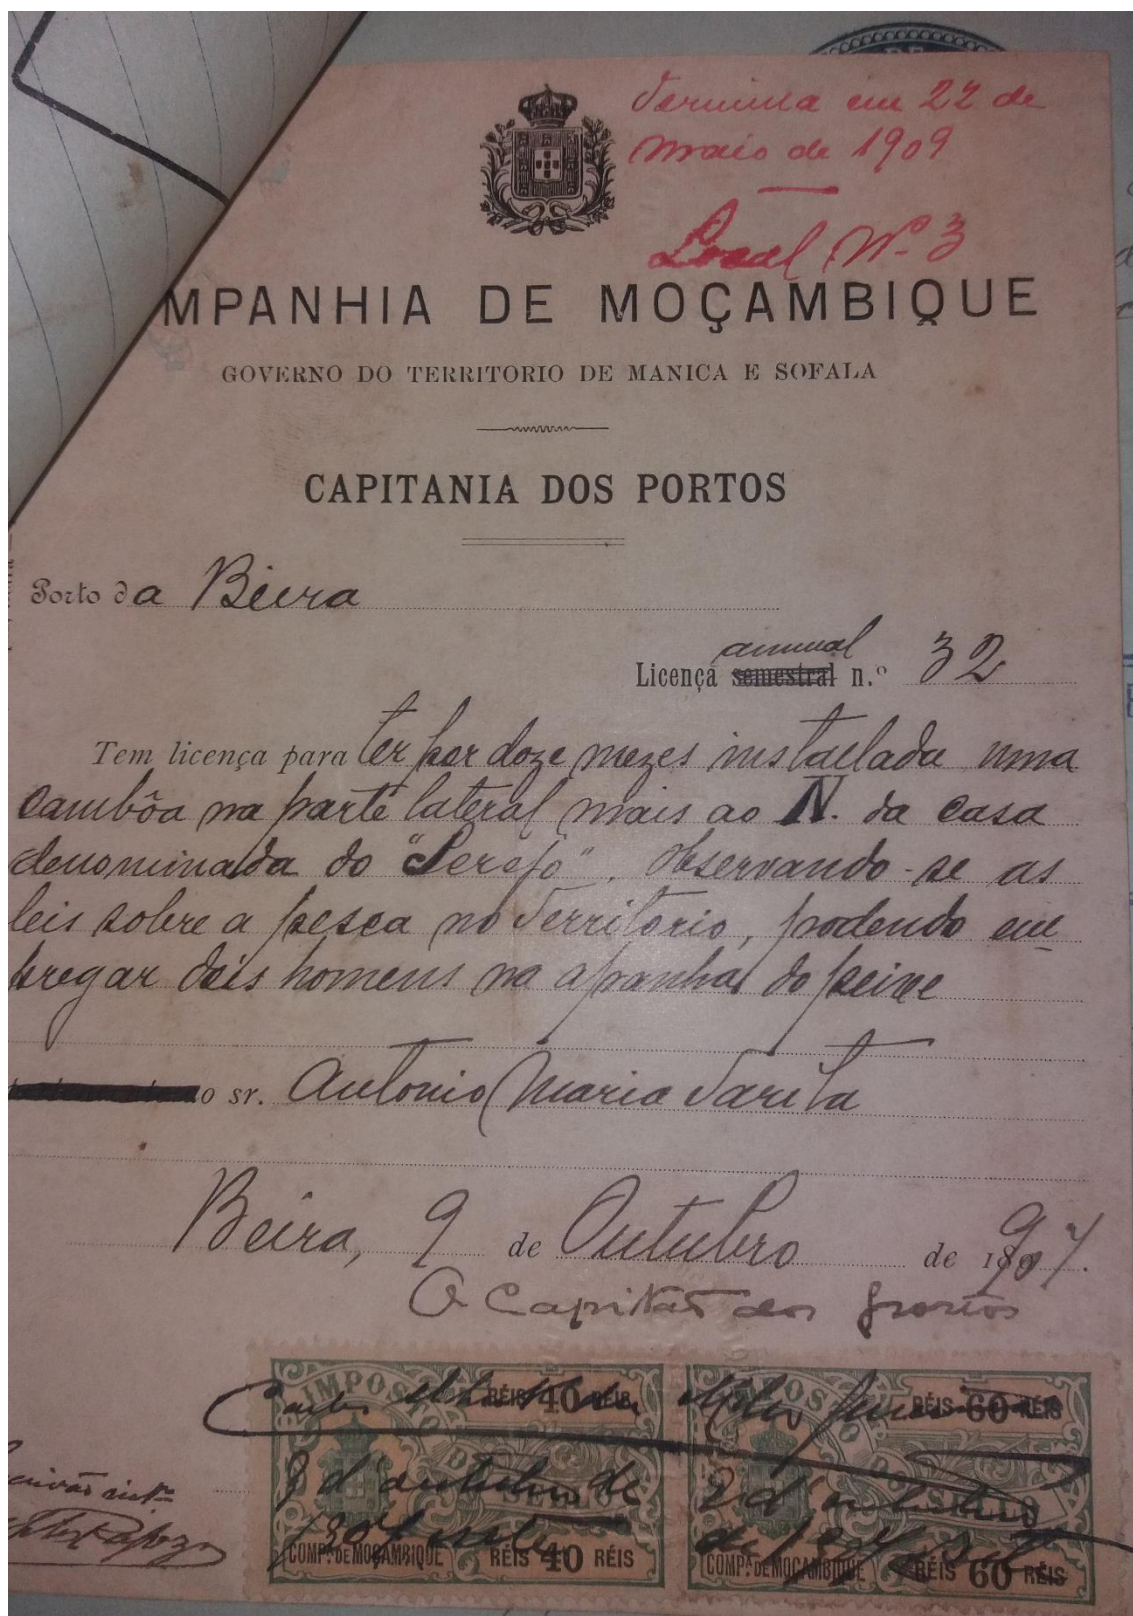 Termina em 22 de
Maio de 1909
Local Nº 3
MPANHIA DE MOÇAMBIQUE
GOVERNO DO TERRITORIO DE MANICA E SOFALA
CAPITANIA DOS PORTOS
Porto da Beira
annual
Licença semestral n.º 32
Tem licença para ter por doze mezes installada uma
cambôa na parte lateral mais ao N. da casa
denominada do " ". Observando-se as
leis sobre a pesca no Territorio, podendo em
pregar dois homens na apanha do peixe
o sr. Antonio Maria Sarita
Beira, 9 de Outubro de 1907.
O Capitão dos Portos
IMPOSTO DO SELLO RÉIS 40 RÉIS
IMPOSTO DO SELLO RÉIS 60 RÉIS
Carlos
9 d'outubro de
1907
COMPª. DE MOÇAMBIQUE RÉIS 40 RÉIS
COMPª. DE MOÇAMBIQUE RÉIS 60 RÉIS